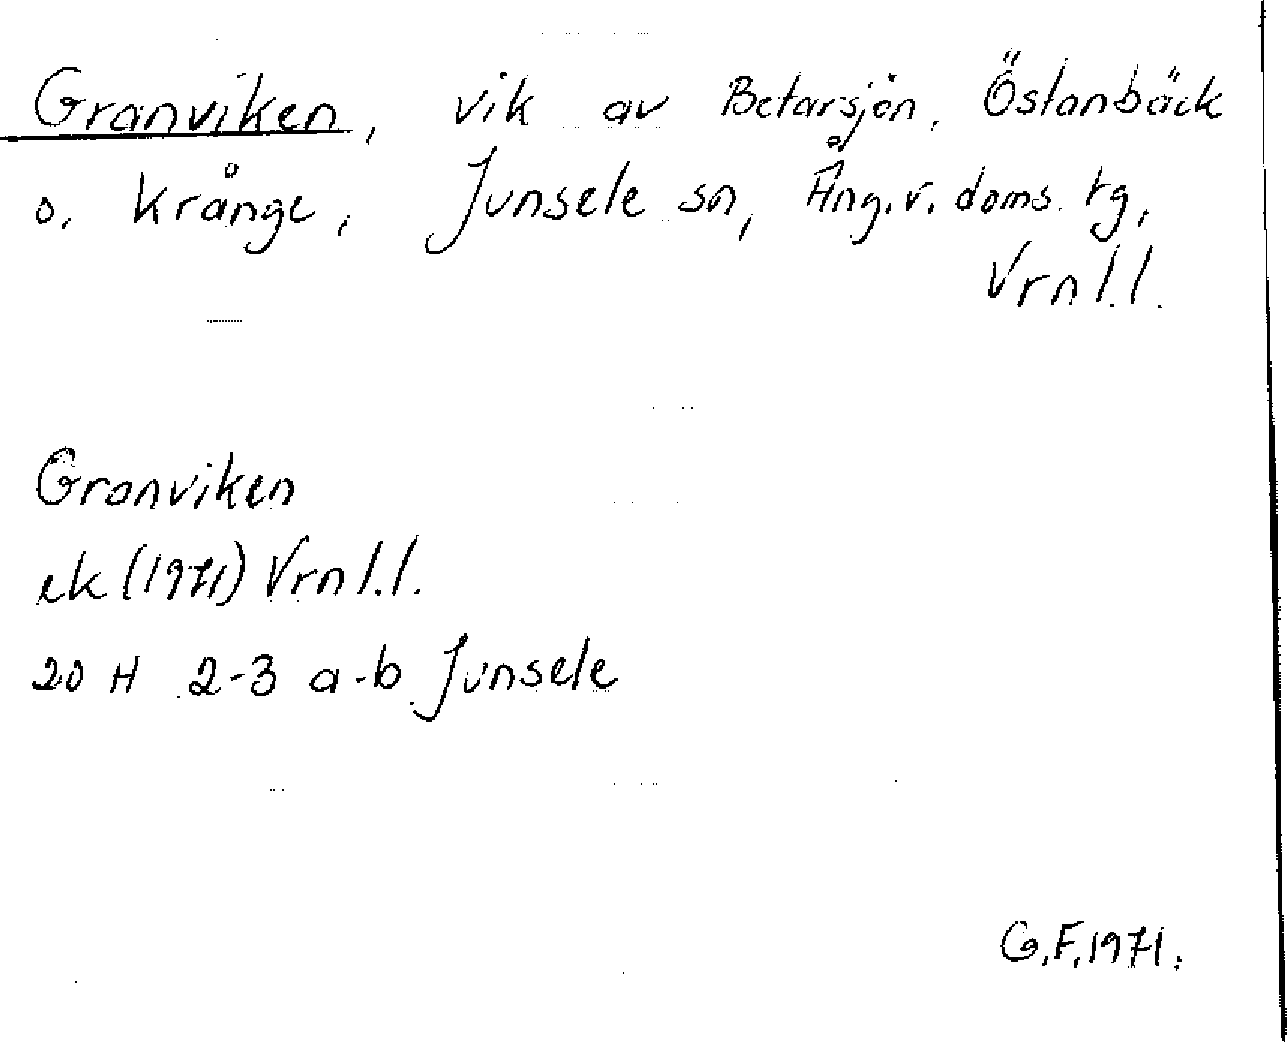 Granviken, vik av Betarsjön, Östanbäck
o. Krånge, Junsele sn, Ång.v. doms. tg,
Vrnl.l.
Granviken
ek (1971) Vrnl.l.
20 H 2-3 a-b Junsele
G.F. 1971.